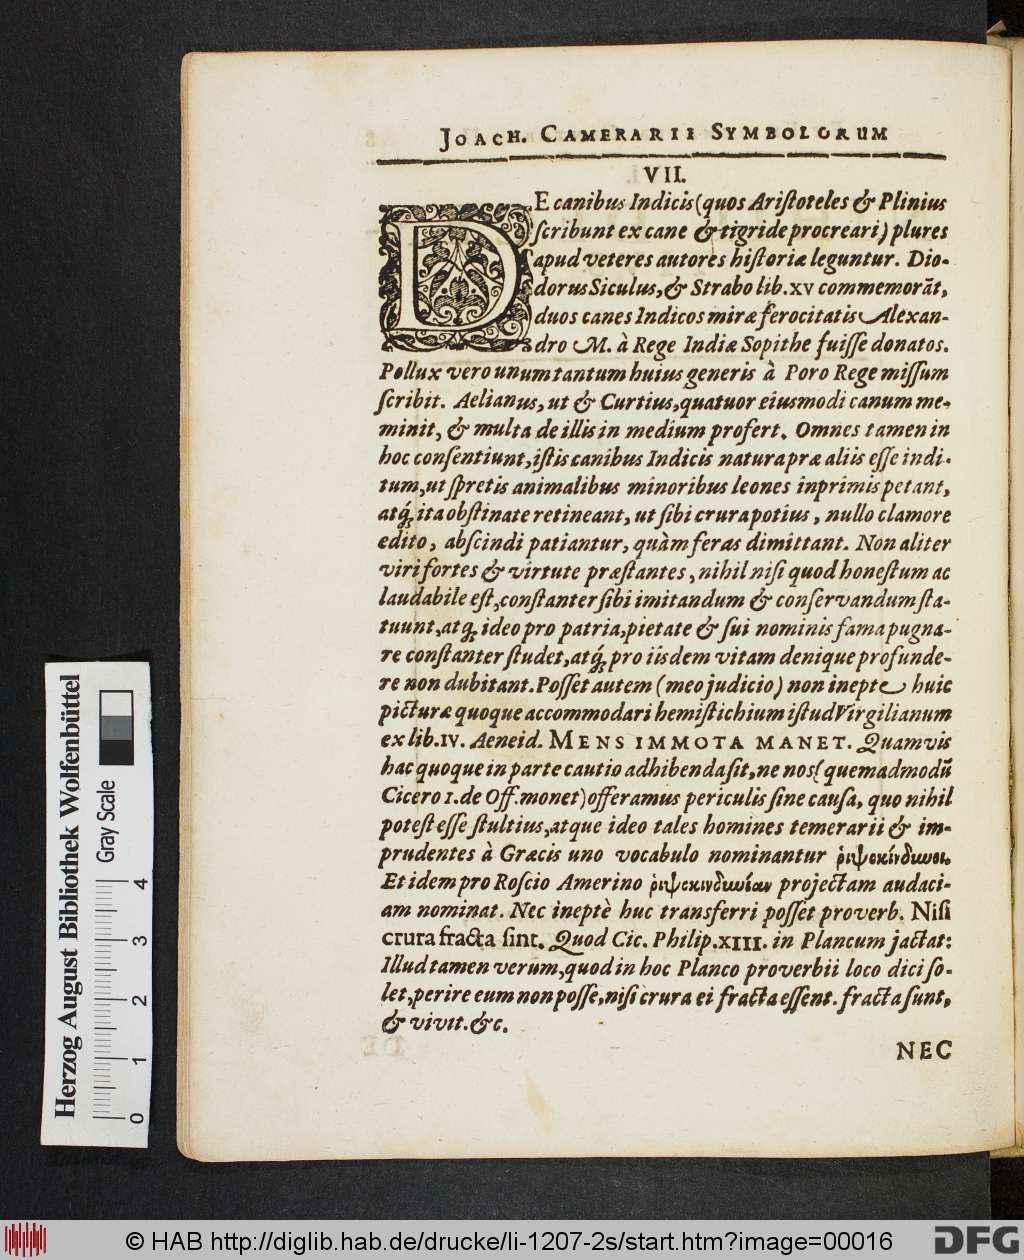 JOACH. CAMERARII SYMBOLORUM
VII.
DE canibus Indicis (quos Aristoteles & Plinius
scribunt ex cane & tigride procreari) plures
apud veteres autores historiæ leguntur. Dio-
dorus Siculus, & Strabo lib. XV commemorãt,
duos canes Indicos miræ ferocitatis Alexan-
dro M. à Rege Indiæ Sopithe fuisse donatos.
Pollux vero unum tantum huius generis à Poro Rege missum
scribit. Aelianus, ut & Curtius, quatuor eiusmodi canum me-
minit, & multa de illis in medium profert. Omnes tamen in
hoc consentiunt, istis canibus Indicis natura præ aliis esse indi-
tum, ut spretis animalibus minoribus leones inprimis petant,
atq́; ita obstinate retineant, ut sibi crura potius, nullo clamore
edito, abscindi patiantur, quàm feras dimittant. Non aliter
viri fortes & virtute præstantes, nihil nisi quod honestum ac
laudabile est, constanter sibi imitandum & conservandum sta-
tuunt, atq́; ideo pro patria, pietate & sui nominis fama pugna-
re constanter studet, atq́; pro iisdem vitam denique profunde-
re non dubitant. Posset autem (meo judicio) non inepte huic
picturæ quoque accommodari hemistichium istud Virgilianum
ex lib. IV. Aeneid. MENS IMMOTA MANET. Quamvis
hac quoque in parte cautio adhibenda sit, ne nos (quemadmodũ
Cicero 1. de Off. monet) offeramus periculis sine causa, quo nihil
potest esse stultius, atque ideo tales homines temerarii & im-
prudentes à Græcis uno vocabulo nominantur ῥιψοκίνδυνοι.
Et idem pro Roscio Amerino ῥιψοκινδυνίαν projectam audaci-
am nominat. Nec ineptè huc transferri posset proverb. Nisi
crura fracta sint. Quod Cic. Philip. XIII. in Plancum jactat:
Illud tamen verum, quod in hoc Planco proverbii loco dici so-
let, perire eum non posse, nisi crura ei fracta essent. fracta sunt,
& vivit. &c.
NEC
Herzog August Bibliothek Wolfenbüttel
Gray Scale
0 1 2 3 4
© HAB http://diglib.hab.de/drucke/li-1207-2s/start.htm?image=00016
DFG